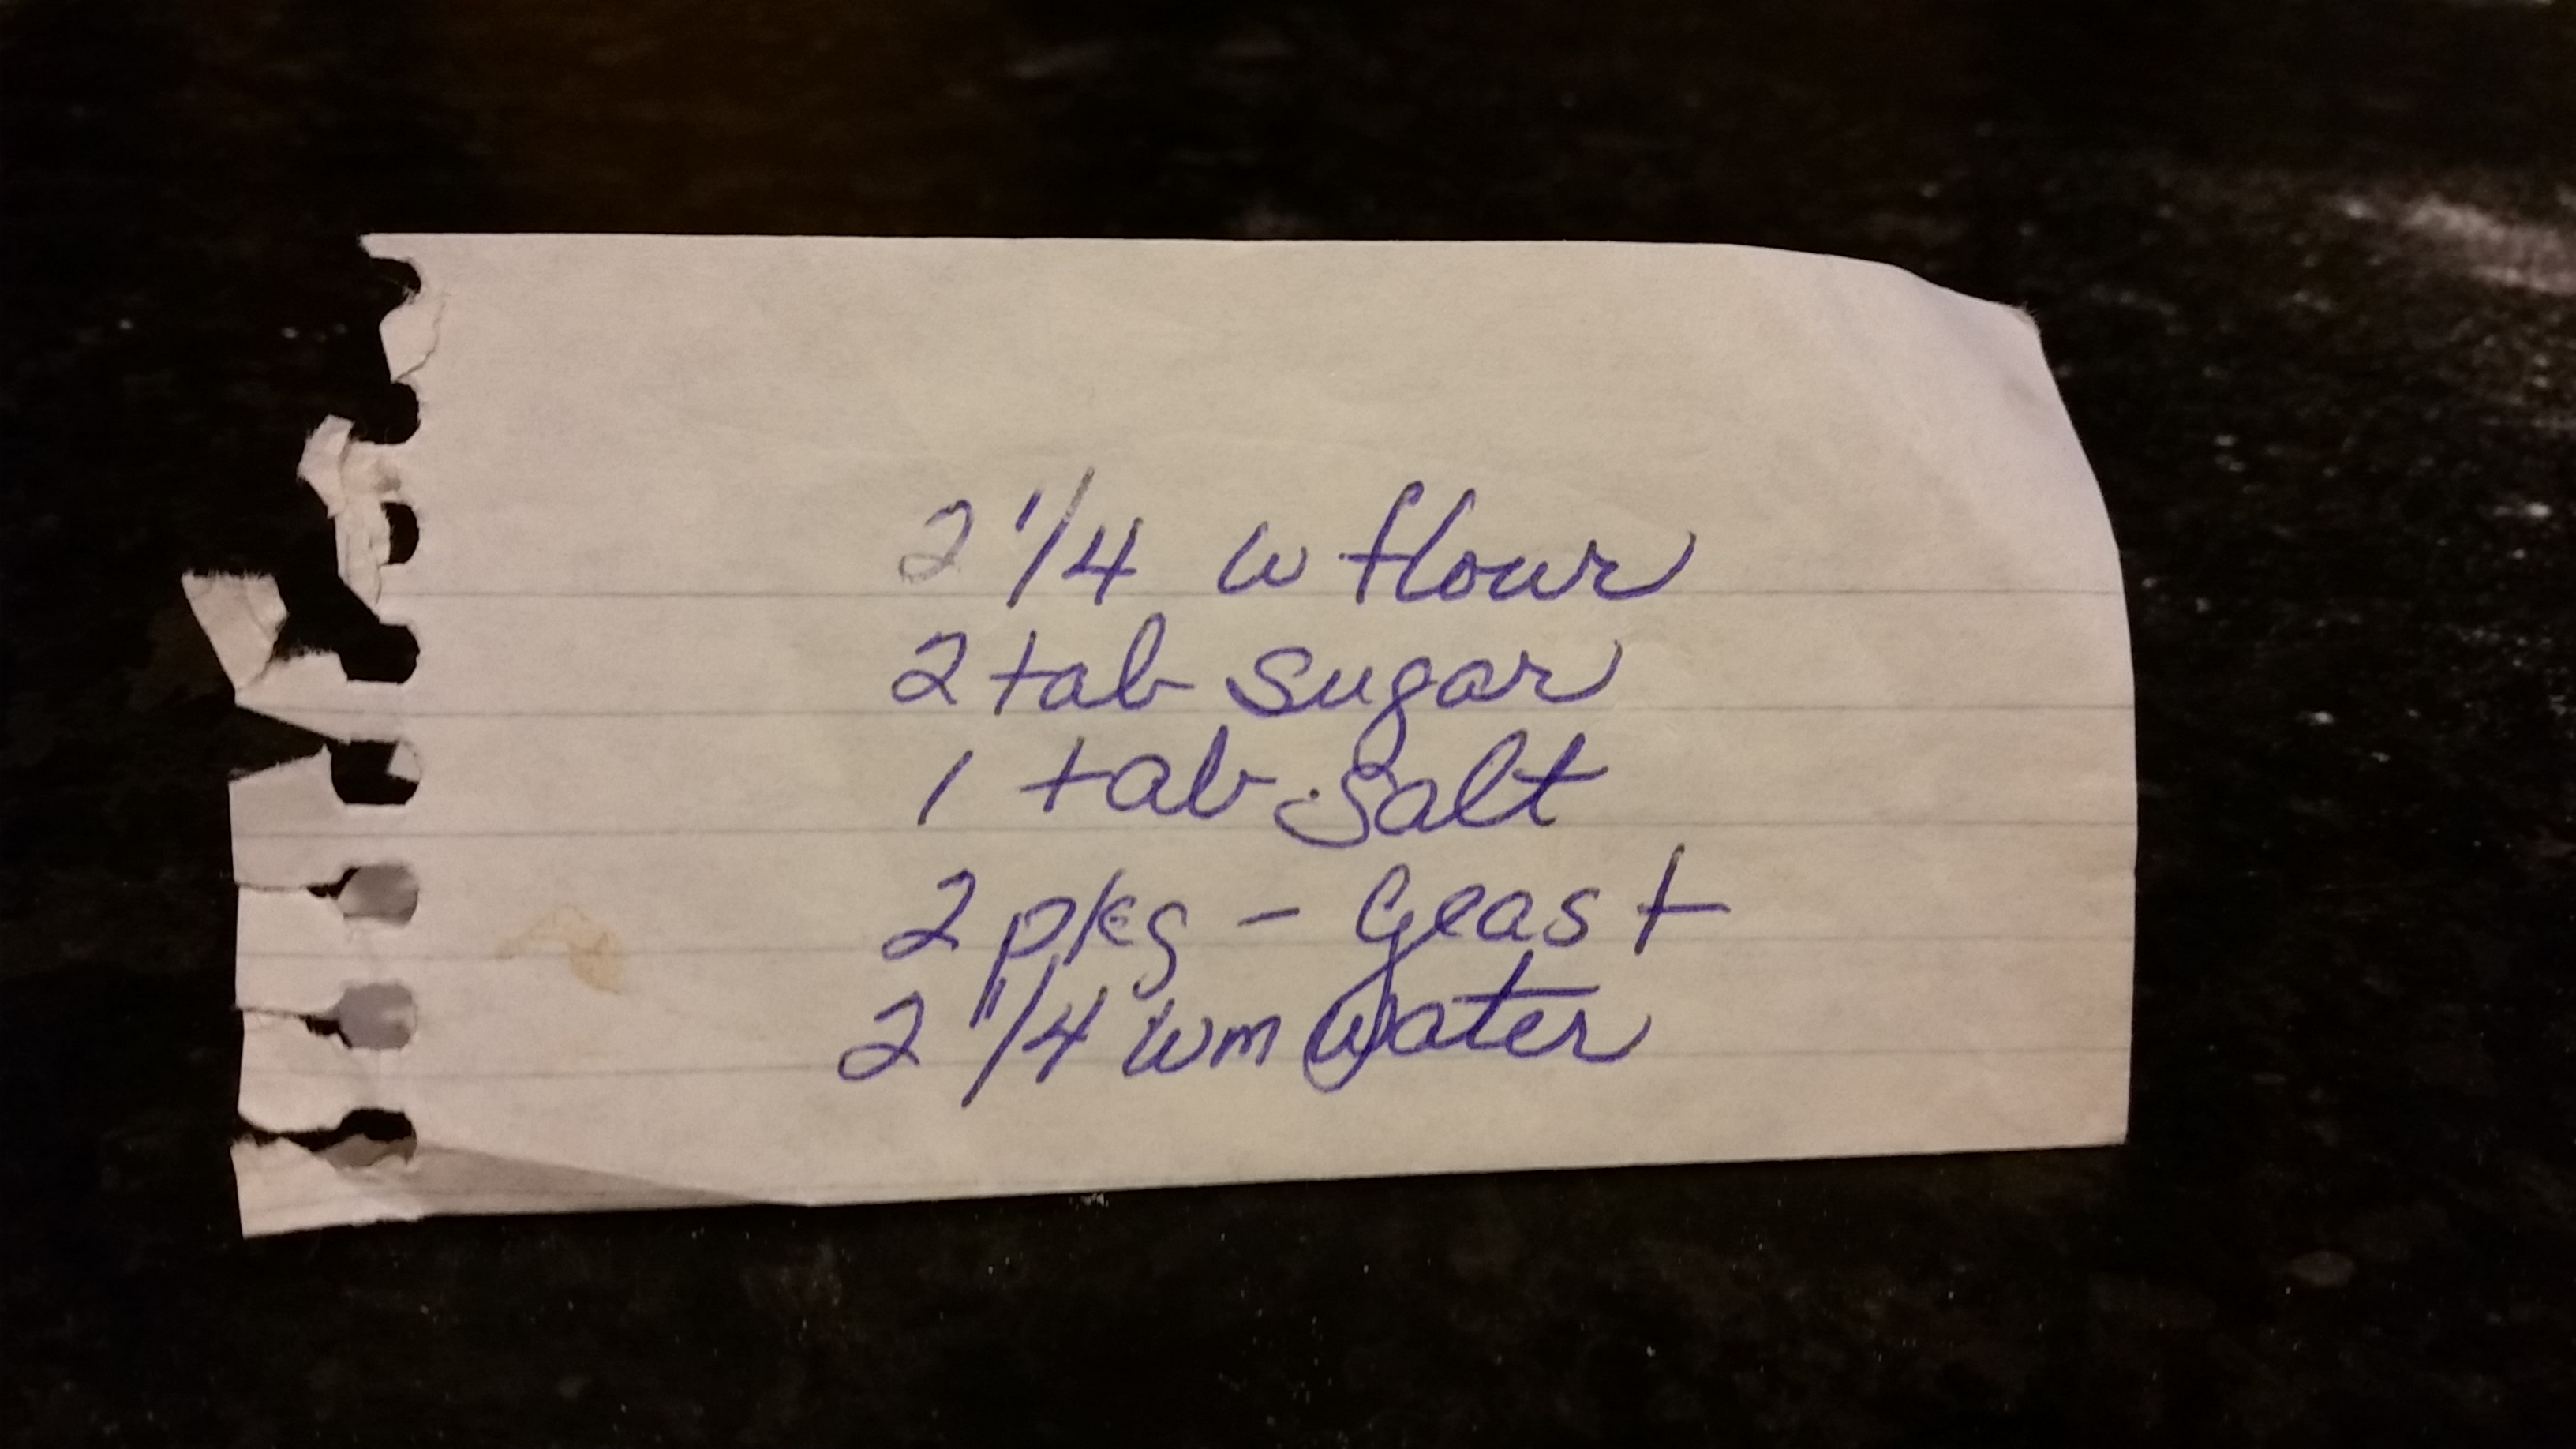 2 1/4 w flour
2 tab sugar
1 tab salt
2 pkg - yeast
2 1/4 wm water